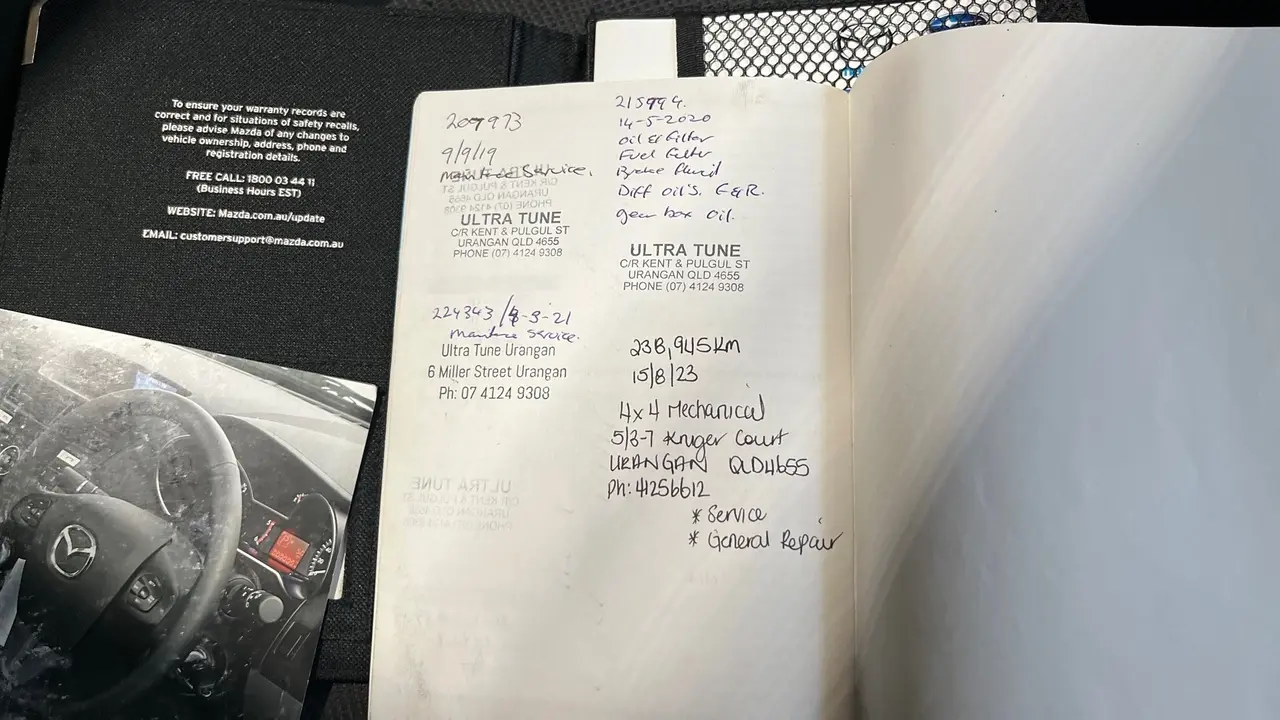 To ensure your warranty records are
correct and for situations of safety recalls,
please advise Mazda of any changes to
vehicle ownership, address, phone and
registration details.
FREE CALL: 1800 03 44 11
(Business Hours EST)
WEBSITE: Mazda.com.au/update
EMAIL: customersupport@mazda.com.au
207973
9/9/19
Service.
ULTRA TUNE
C/R KENT & PULGUL ST
URANGAN QLD 4655
PHONE (07) 4124 9308
224343 / 8-3-21
Service.
Ultra Tune Urangan
6 Miller Street Urangan
Ph: 07 4124 9308
ULTRA TUNE
215994.
14-5-2020
Oil & Filter
Fuel Filter
Brake fluid
Diff oil's. F&R.
gear box oil.
ULTRA TUNE
C/R KENT & PULGUL ST
URANGAN QLD 4655
PHONE (07) 4124 9308
238,945km
15/8/23
4x4 Mechanical
5/3-7 Kruger Court
URANGAN QLD4655
Ph: 41256612
* Service
* General Repair